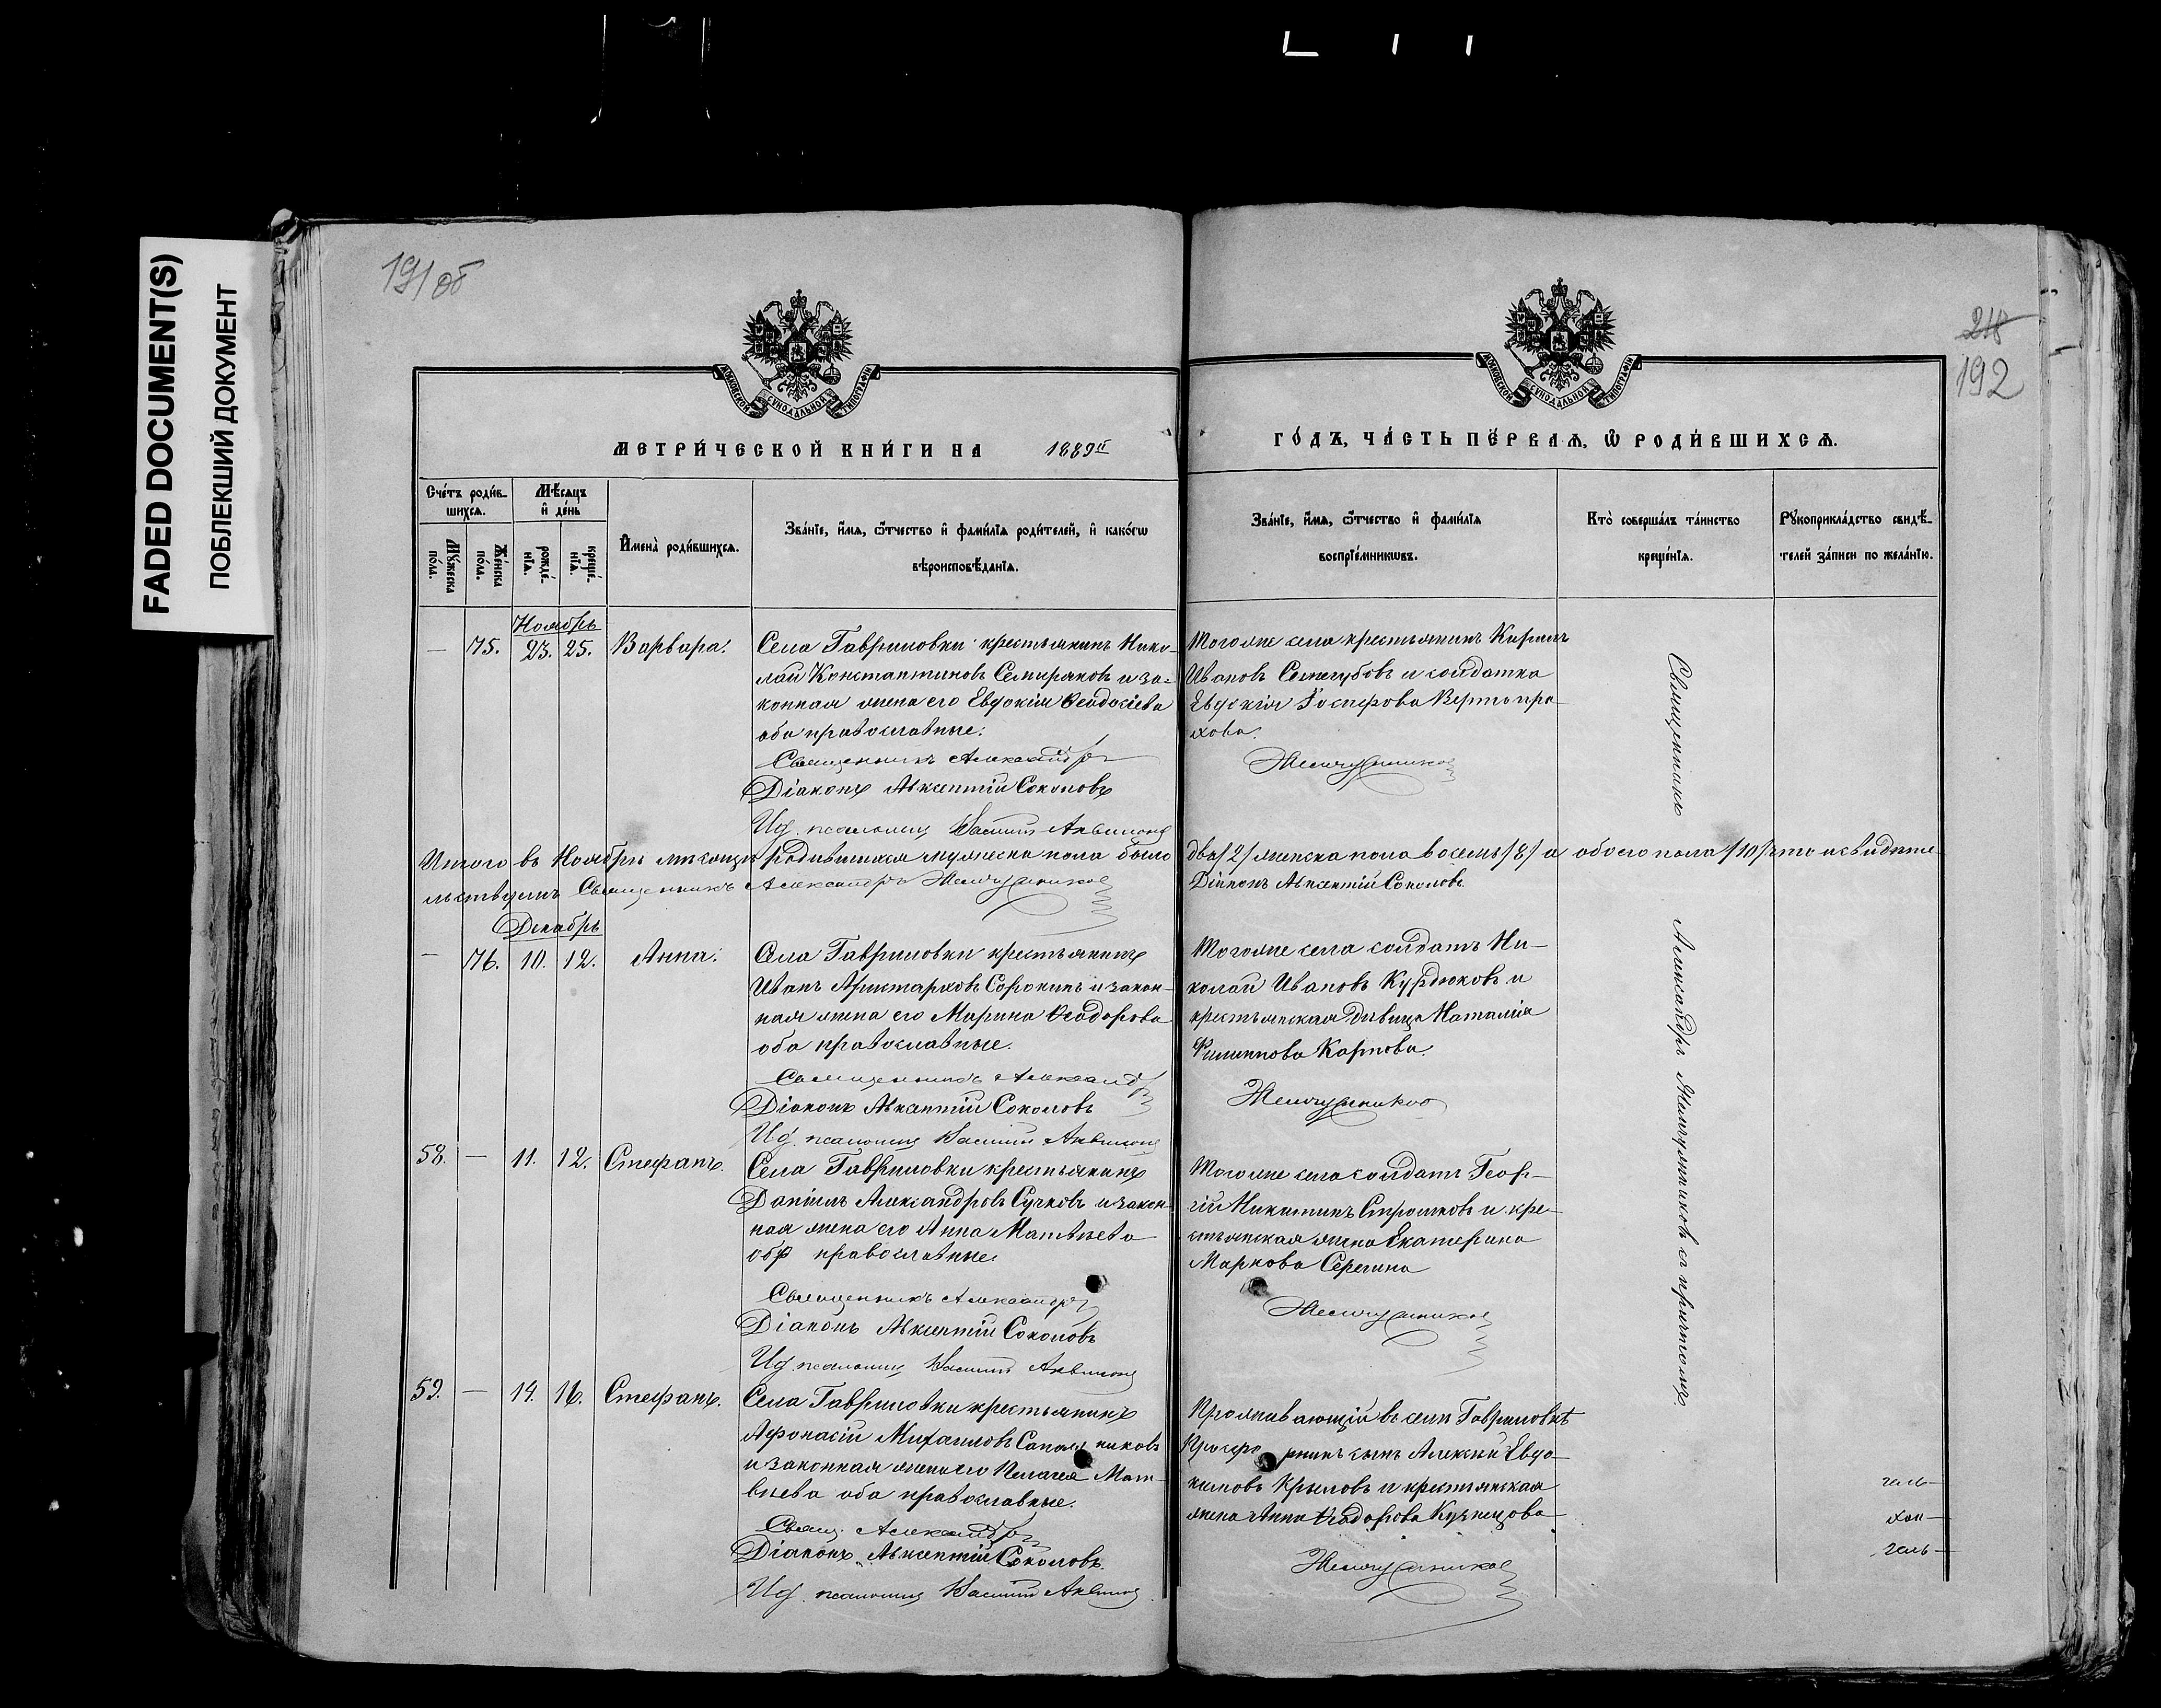 FADED DOCUMENT(S)
ПОБЛЕКШИЙ ДОКУМЕНТ
191об
218
192
МОСКОВСКОЙ СѴНОДАЛЬНОЙ ТИПОГРАФІИ
МОСКОВСКОЙ СѴНОДАЛЬНОЙ ТИПОГРАФІИ
МЕТРИ́ЧЕСКОЙ КНИ́ГИ НА 1889й
ГО́ДЪ, ЧА́СТЬ ПЕ́РВАѦ, Ѡ РОДИ́ВШИХСѦ.
Сче́тъ роди́в-
шихсѧ.
Мѣ́сѧцъ
и де́нь
Мꙋ́жеска по́ла.
Же́нска по́ла.
рожде́-нїѧ.
креще́-нїѧ.
Имена̀ роди́вшихсѧ.
Зва́нїе, и́мѧ, ѻ́тчество и фами́лїѧ роди́телей, и како́гѡ
вѣроисповѣ́данїѧ.
Зва́нїе, и́мѧ, ѻ́тчество и фами́лїѧ
воспрїе́мникѡвъ.
Кто̀ соверша́лъ та́инство
креще́нїѧ.
Рꙋкоприкла́дство свидѣ́-
телей за́писи по жела́нїю.
Ноябрь
— 75. 23. 25. Варвара.
Села Гавриловки крестьянинъ Нико-
лай Константиновъ Семиряковъ и за-
конная жена его Евдокія Ѳеодосіева
оба православные.
Священникъ Александръ
Діаконъ Авксентій Соколовъ
Ид. псаломщ Василій Аквилоно
Тогоже села крестьянинъ Кирилъ
Ивановъ Сежегубовъ и солдатка
Евдокія Іосифова Вертопра-
хова.
Жемчужниковъ
Итого въ Ноябрѣ мѣсяцѣ родившихся мужеска пола было два /2/ женска пола восемь /8/ а обоего пола /10/ что и свидѣте-
льствуемъ Священникъ Александръ Жемчужниковъ
Діаконъ Авксентій Соколовъ
Декабрь
— 76. 10. 12. Анна.
Села Гавриловки крестьянинъ
Иванъ Аристарховъ Сорокинъ и закон-
ная жена его Марина Ѳеодорова
оба православные.
Священникъ Александръ
Діаконъ Авксентій Соколовъ
Ид. псаломщ Василій Аквилоно
Тогоже села солдатъ Ни-
колай Ивановъ Курдюковъ и
крестьянская дѣвица Наталія
Филиппова Карпова.
Жемчужниковъ
58. — 11. 12. Стефанъ.
Села Гавриловки крестьянинъ
Даніилъ Александровъ Сучковъ и закон-
ная жена его Анна Матвѣева
оба православные.
Священникъ Александръ
Діаконъ Авксентій Соколовъ
Ид. псаломщ Василій Аквилоно
Тогоже села солдатъ Геор-
гій Никитинъ Строшковъ и кре-
стьянская жена Екатерина
Маркова Серегина
Жемчужниковъ
59. — 14. 16. Стефанъ.
Села Гавриловки крестьянинъ
Афонасій Михаиловъ Сапожниковъ
и законная жена его Пелагея Мат-
вѣева оба православные.
Свящ. Александръ
Діаконъ Авксентій Соколовъ
Ид. псаломщ Василій Аквилоно
Проживающій въ селѣ Гавриловкѣ
Просфорнинъ сынъ Алексѣй Евдо-
кимовъ Крыловъ и крестьянская
жена Анна Ѳеодорова Кузнецова
Жемчужниковъ
Священникъ Александръ Жемчужниковъ съ причтомъ